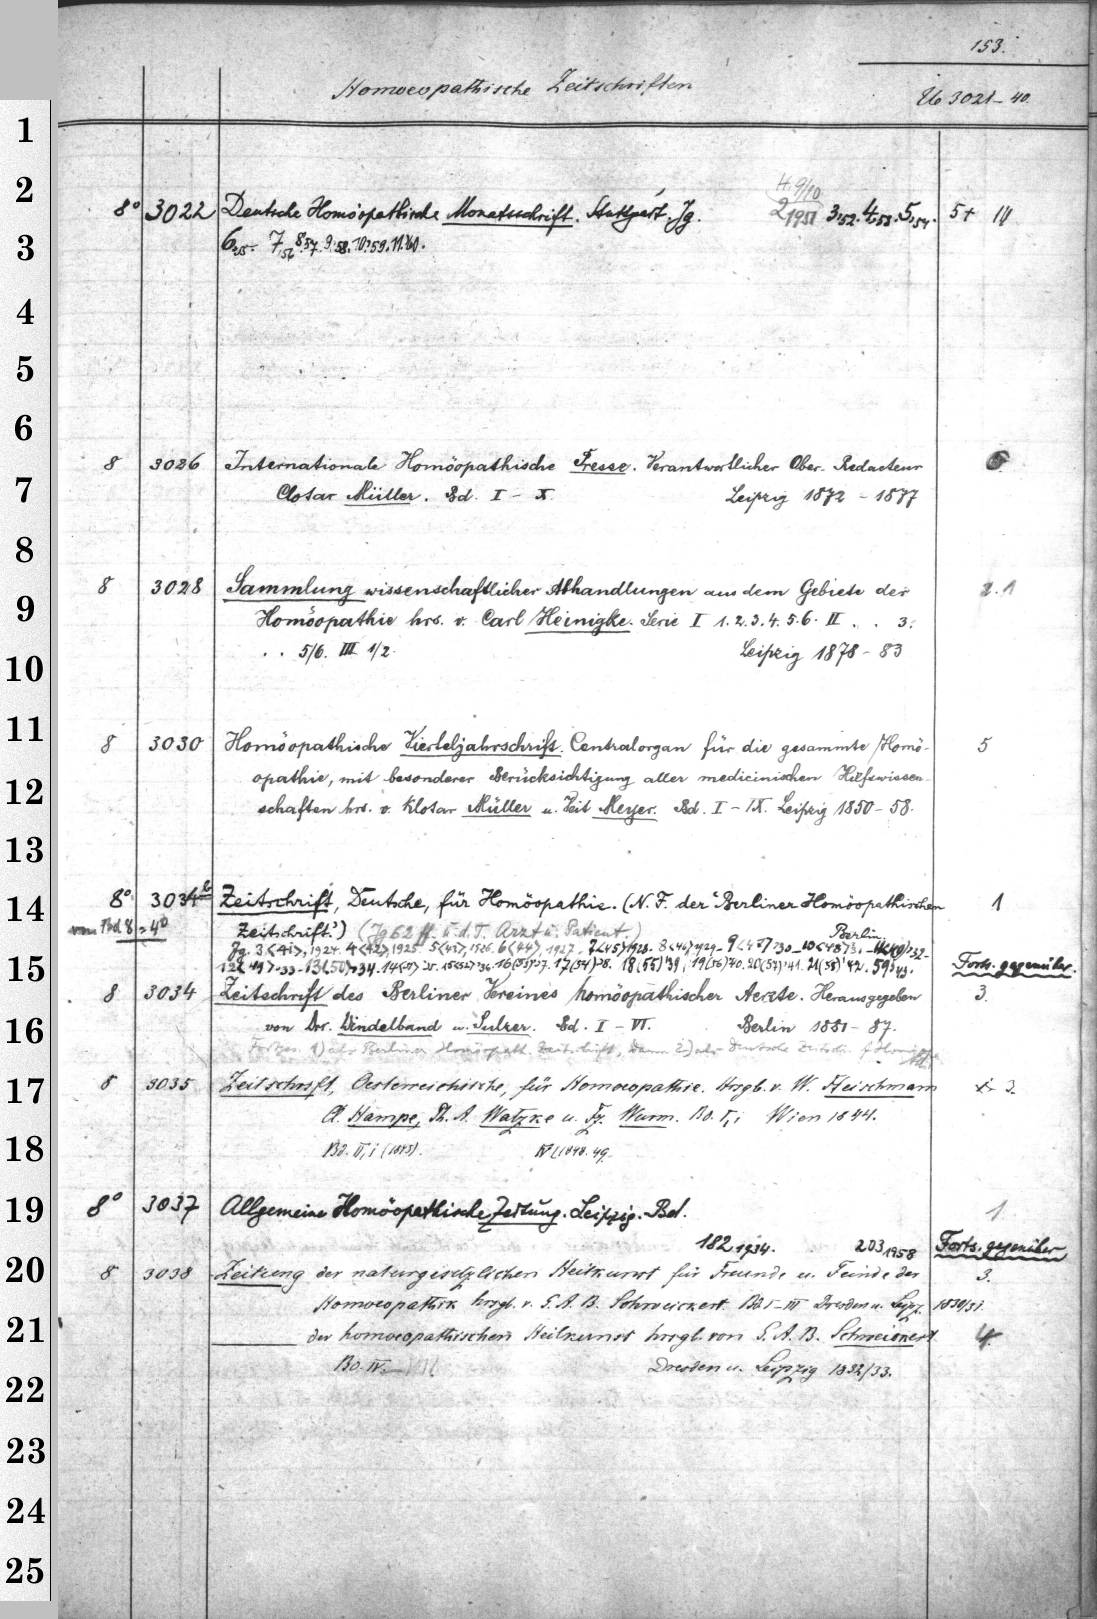 153.
Homoeopathische Zeitschriften
Ub 3021-40.
H. 9/10
8° 3022 Deutsche Homöopathische Monatsschrift. Stuttgart. Jg. 2,1951 3,52. 4,53. 5,54. 5+ IV
6,55. 7,56 8,57. 9,58. 10,59. 11,60.
8 3026 Internationale Homöopathische Presse. Verantwortlicher Ober-Redacteur 6
Clotar Müller. Bd. I - X. Leipzig 1872 - 1877
8 3028 Sammlung wissenschaftlicher Abhandlungen aus dem Gebiete der 2. 1
Homöopathie hrs. v. Carl Heinigke. Serie I 1. 2. 3. 4. 5. 6. II . . 3.
. . 5/6. III 1/2. Leipzig 1878 - 83
8 3030 Homöopathische Vierteljahrschrift. Centralorgan für die gesammte Homö- 5
opathie, mit besonderer Berücksichtigung aller medicinischen Hilfswissen-
schaften hrs. v. Klotar Müller u. Veit Meyer. Bd. I - IX. Leipzig 1850 - 58.
8° 3034b Zeitschrift, Deutsche, für Homöopathie. (N. F. der "Berliner Homöopathischen 1
von Bd 8 = 4° Zeitschrift") (Jg 62 ff u. d. T. Arzt u. Patient.) Berlin
Jg. 3<41>, 1924. 4<42>, 1925 5<43>, 1926. 6<44> 1927. 7<45>1928. 8<46>1929. 9<47>30. 10<48>31. 11<49>32.
12<49>33. 13(50)34. 14(51)35. 15(52)36. 16(53)37. 17(54)38. 18(55)39. 19(56)40. 20(57)41. 21(58)42. 59,43. Forts. gegenüber.
8 3034 Zeitschrift des Berliner Vereines homöopathischer Aerzte. Herausgegeben 3.
von Drr. Windelband u. Sulzer. Bd. I - VI. Berlin 1881 - 87.
Fortges. 1) als Berliner Homöopath. Zeitschrift, dann 2) als Deutsche Zeitschr. f. Homöop.
8 3035 Zeitschrift, Oesterreichische, für Homoeopathie. Hrsgb. v. W. Fleischmann 3.
Cl. Hampe, Th. A. Watzke u. Fz. Wurm. Bd. I,i Wien 1844.
Bd. II,i (1845). IV (1848. 49.
8° 3037 Allgemeine Homöopathische Zeitung. Leipzig. Bd. 1
182 1934. 203 1958 Forts. gegenüber
8 3038 Zeitung der naturgesetzlichen Heilkunst für Freunde u. Feinde der 3.
Homoeopathik hrsgb. v. G. A. B. Schweickert. Bd I-III Dresden u. Leipz. 1830/31.
der homoeopathischen Heilkunst hrsgb. von G. A. B. Schweickert. 4.
Bd. IV. Dresden u. Leipzig 1832/33.
1
2
3
4
5
6
7
8
9
10
11
12
13
14
15
16
17
18
19
20
21
22
23
24
25